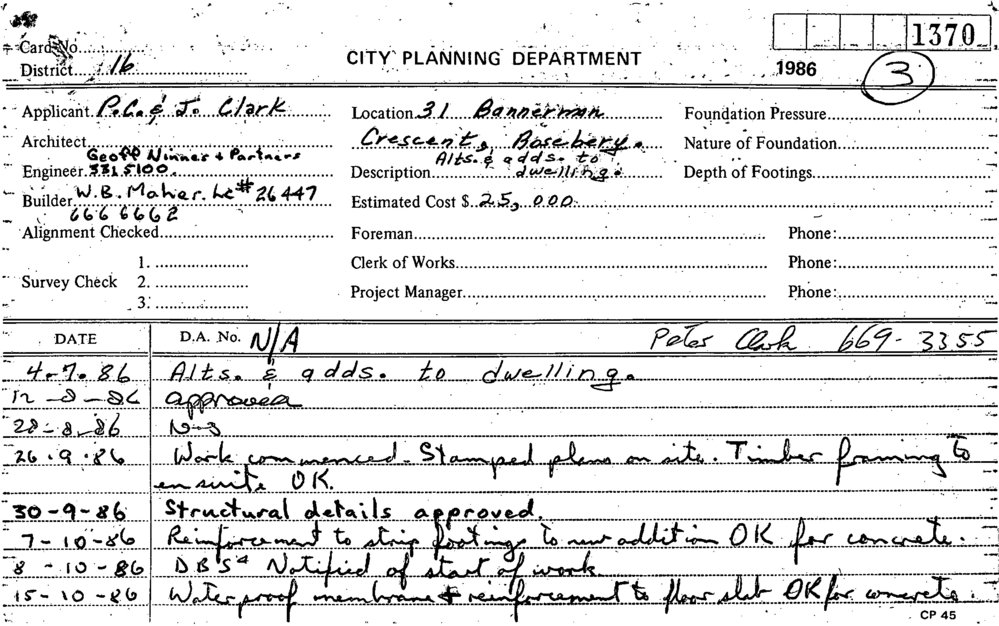 1370
Card No.
CITY PLANNING DEPARTMENT
District 16
1986
3
Applicant P.C. & J. Clark
Location 31 Bannerman
Foundation Pressure
Architect
Crescent, Rosebery.
Nature of Foundation
Geoff Ninnes + Partners
Alts. & adds. to
Engineer 331 5100.
Description dwelling.
Depth of Footings
Builder W.B. Maher. Lc # 26447
Estimated Cost $ 25,000
666 6662
Alignment Checked
Foreman
Phone:
1.
Clerk of Works
Phone:
Survey Check 2.
Project Manager
Phone:
3.
DATE D.A. No. N/A Peter Clark 669-3355
4.7.86 Alts. & adds. to dwelling.
12-8-86 approved
28-8-86 N-S
26.9.86 Work commenced - Stamped plans on site. Timber framing to
ensuite OK.
30-9-86 Structural details approved.
7-10-86 Reinforcement to strip footings to new addition OK for concrete.
8-10-86 DBS Notified of start of work
15-10-86 Waterproof membrane + reinforcement to floor slab OK for concrete.
CP 45